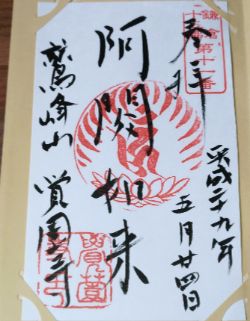 鎌倉
第十一番
奉拝
平成二十九年
五月廿四日
阿閦如来
鷲峰山 覚園寺